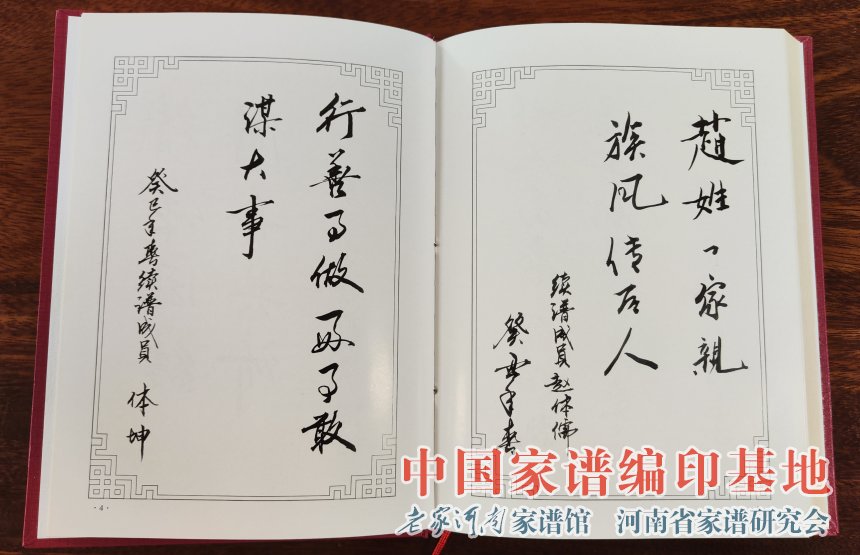 行善事做好事敢
谋大事
癸巳年春续谱成员 体坤
·4·
趙姓一家親
族风传后人
续谱成员赵体
癸年春
中国家谱编印基地
老家河南家谱馆 河南省家谱研究会